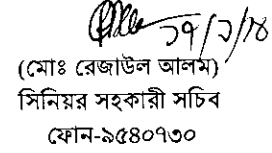 ১৭/১/১৮
(মোঃ রেজাউল আলম)
সিনিয়র সহকারী সচিব
ফোন-৯৫৪০৭৩০